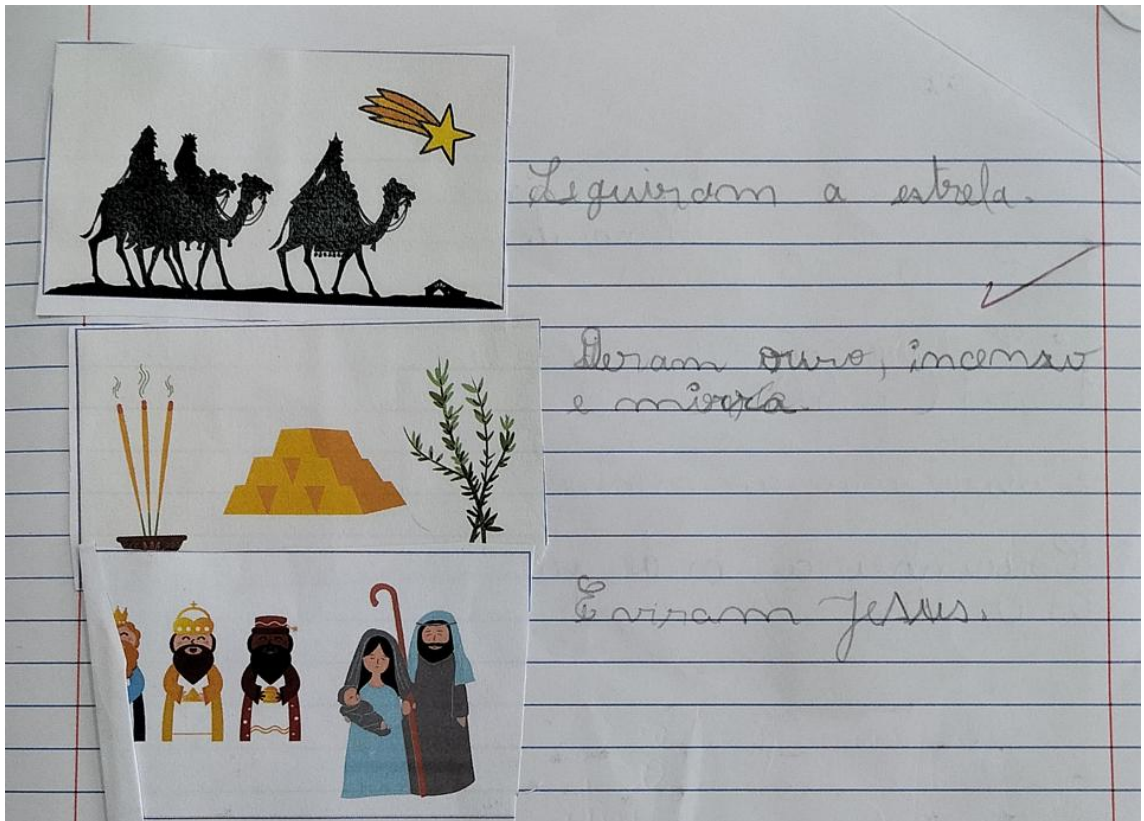 Seguiram a estrela.
Deram ouro, incenso
e mirra.
E viram Jesus.